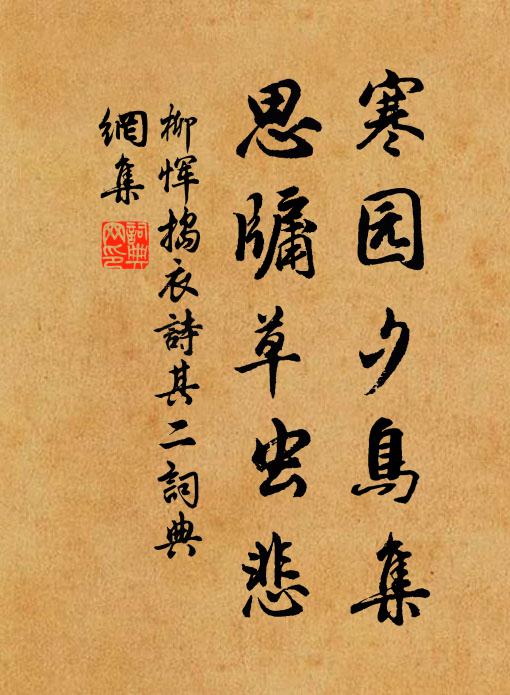 寒园夕鸟集
思牖草虫悲
柳恽捣衣詩其二詞典
網集
詞典
网印